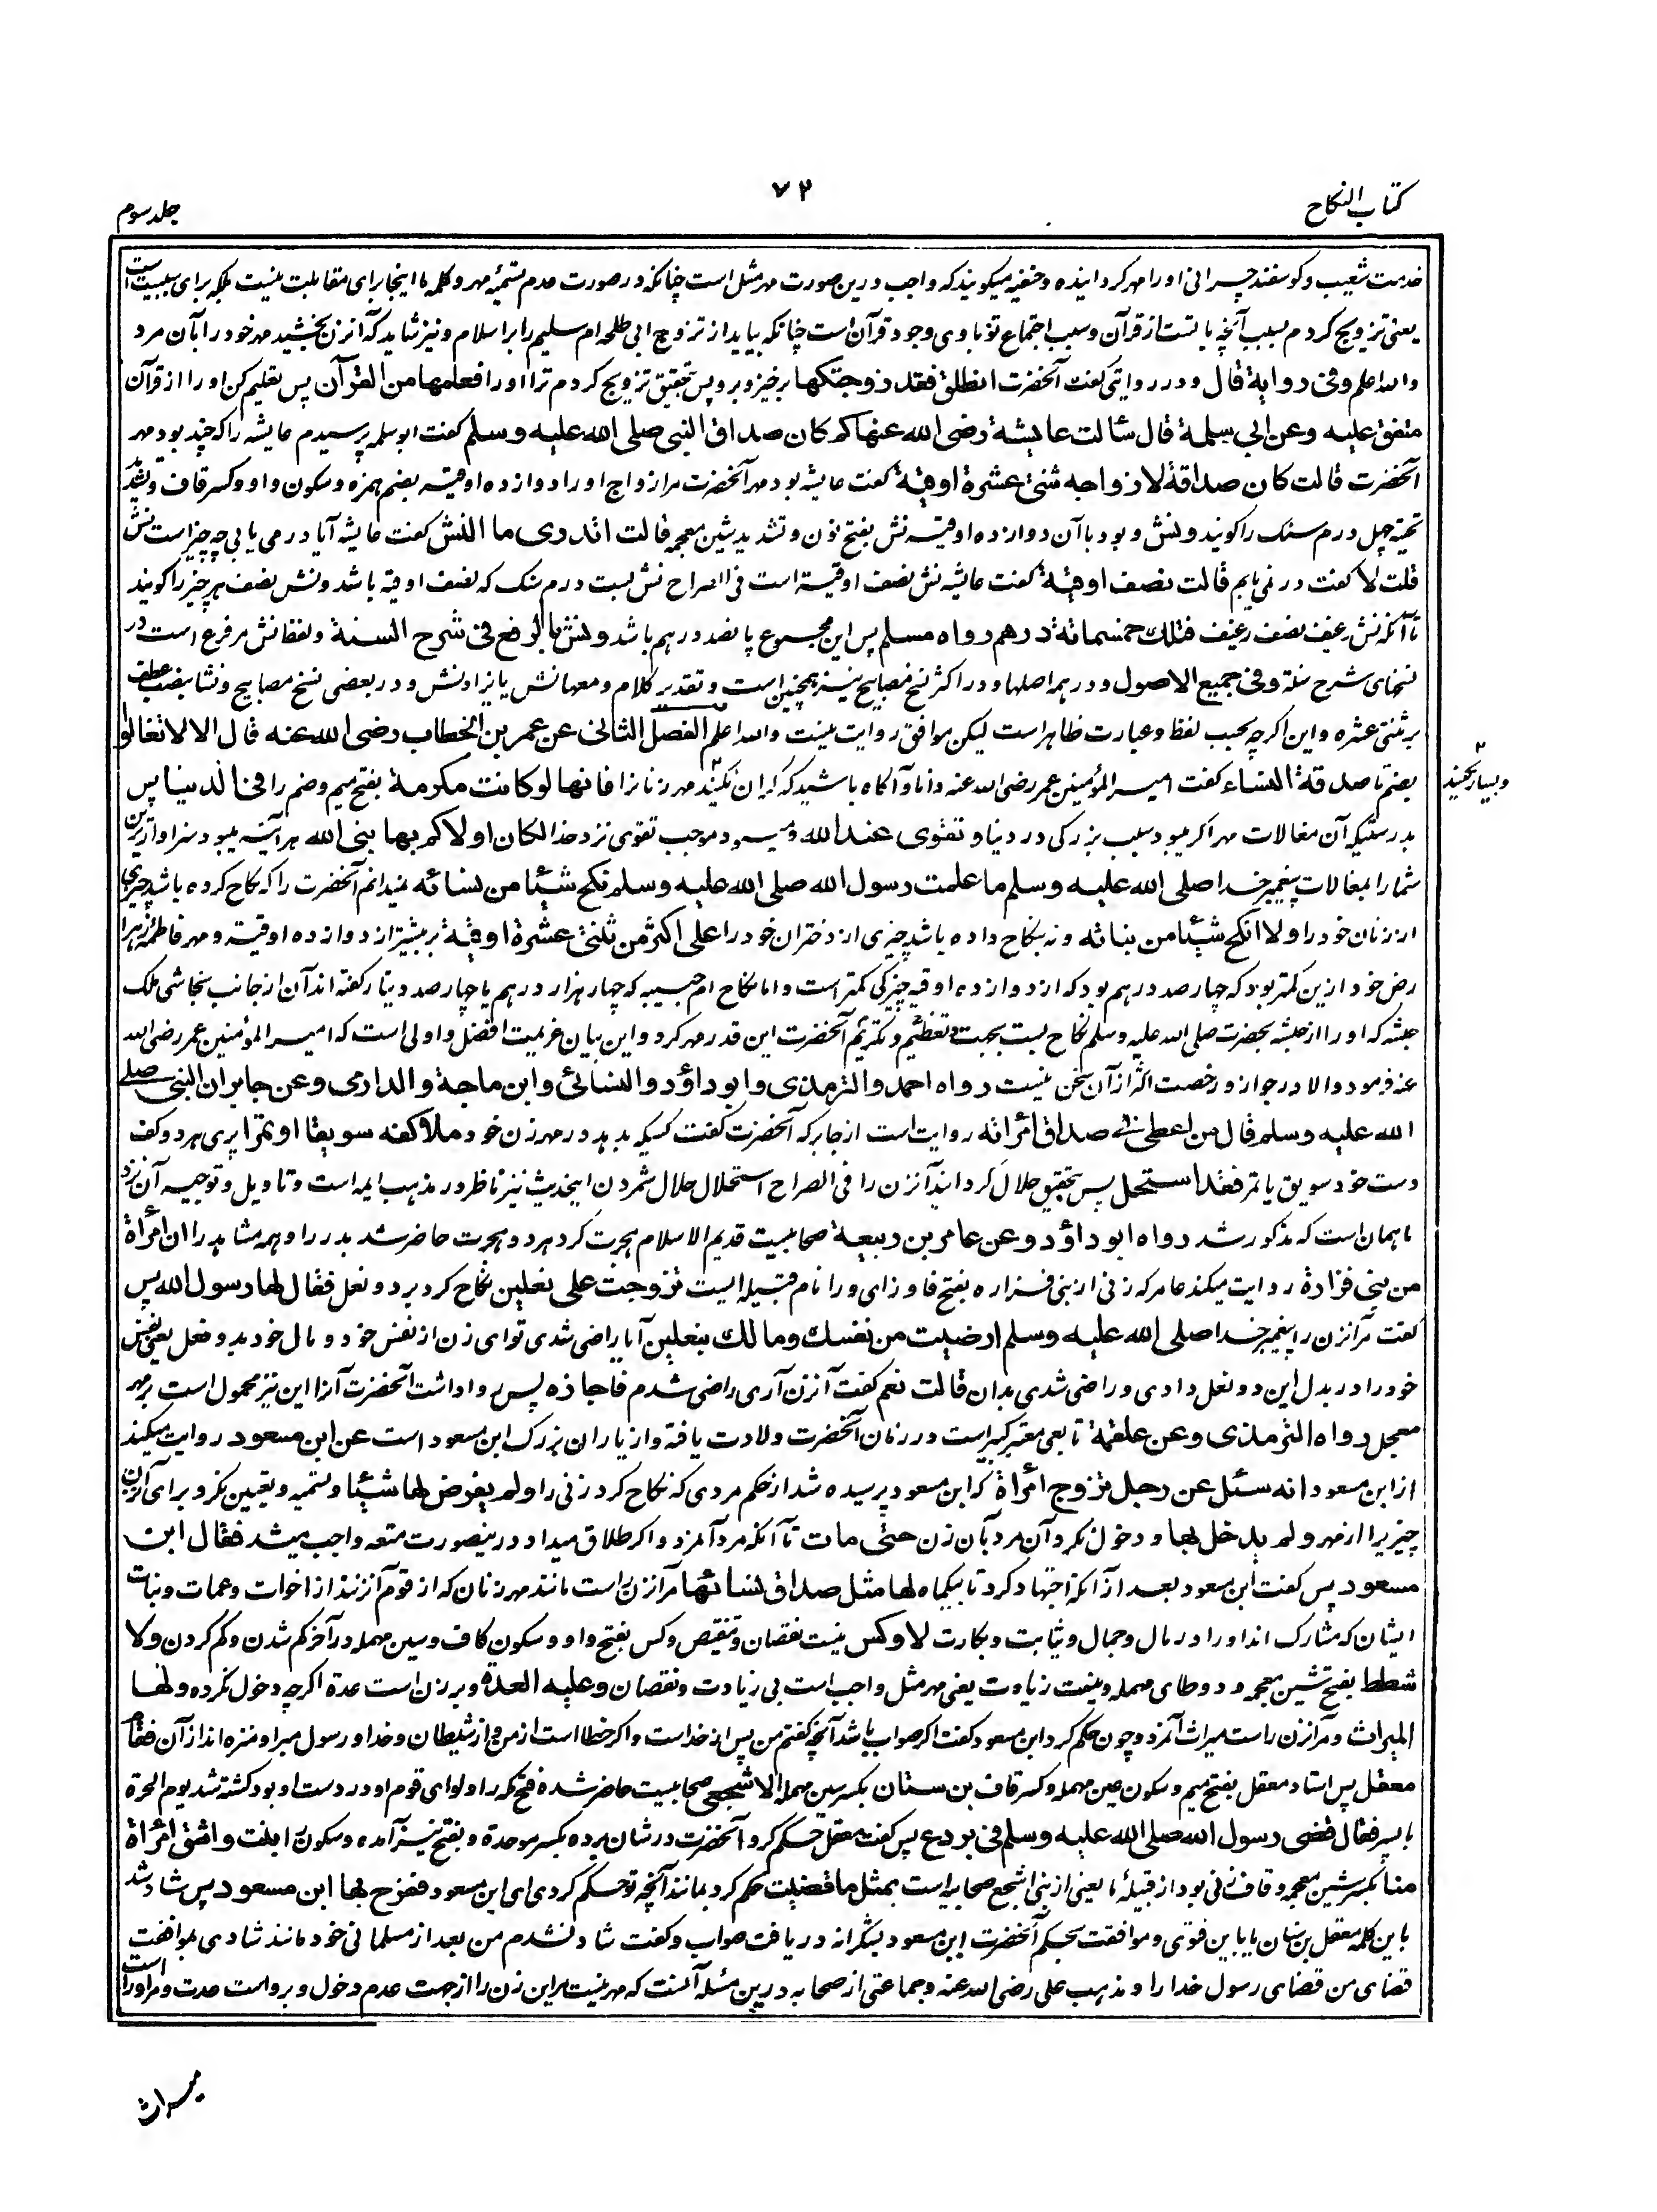 كتاب النكاح
٧٢
جلد سوم
خدمت شعیب و گوسفند چرانی او را مهر گردانیده و حنفیه میگویند که واجب درین صورت مهر مثل است چنانکه در صورت عدم تسمیه مهر و کلمه با اینجا برای مقابلت نیست بلکه برای سببیت است
یعنی تزویج کردم بسبب آنچه با تست از قرآن و سبب اجتماع تو با وی وجود قرآن است چنانکه بیاید از تزوج ابی طلحه ام سلیم را بر اسلام و نیز شاید که آنزن بخشید مهر خود را بآن مرد
والله اعلم وفی روایة قال و در روایتی گفت آنحضرت انطلق فقد زوجتکها برخیز و برو پس بتحقیق تزویج کردم ترا او را فعلمها من القرآن پس تعلیم کن او را از قرآن
متفق علیه وعن ابی سلمة قال سألت عایشة رضی الله عنها کم کان صداق النبی صلی الله علیه وسلم گفت ابو سلمه پرسیدم عایشه را که چند بود مهر
آنحضرت قالت کان صداقه لازواجه ثنتی عشرة اوقیة گفت عایشه بود مهر آنحضرت مر ازواج او را دوازده اوقیه بضم همزه و سکون واو و کسر قاف و تشدید
تحتیه چهل درم سنگ را گویند ونش و بود با آن دوازده اوقیه نش بفتح نون و تشدید شین معجمه قالت اتدری ما النش گفت عایشه آیا در می یابی چه چیز است نش
قلت لا گفت در نمی یابم قالت نصف اوقیة گفت عایشه نش نصف اوقیه است فی الصراح نش بیست درم سنگ که نصف اوقیه باشد ونش نصف هر چیز را گویند
تا آنکه نش رغیف نصف رغیف فتلك خمسمائة درهم رواه مسلم پس این مجموع پانصد درهم باشد ونش بالرفع فی شرح السنة و لفظ نش مرفوع است در
نسخهای شرح سنة وفی جمیع الاصول و در همه اصلها و در اکثر نسخ مصابیح نیز همچنین است و تقدیر کلام و معها نش یا یزاد نش و در بعضی نسخ مصابیح ونشا بنصب عطف
بر ثنتی عشره و این اگرچه بحسب لفظ و عبارت ظاهر است لیکن موافق روایت نیست والله اعلم الفصل الثانی عن عمر بن الخطاب رضی الله عنه قال الا لا تغالوا
بضم تا صدقة النساء گفت امیر المؤمنین عمر رضی الله عنه دانا و آگاه باشید که گران نکنید مهر زنانرا فانها لو کانت مکرمة بفتح میم وضم را فی الدنیا پس
و بسیار نکنید
بدرستیکه آن مغالات مهر اگر میبود سبب بزرگی در دنیا و تقوی عند الله و میبود موجب تقوی نزد خدا لکان اولاکم بها نبی الله هر آئینه میبود سزاوارترین
شما را بمغالات پیغمبر خدا صلی الله علیه وسلم ما علمت رسول الله صلی الله علیه وسلم نکح شیئا من نسائه نمیدانم آنحضرت را که نکاح کرده باشد چیزی
از زنان خود را ولا انکح شیئا من بناته و نه بنکاح داده باشد چیزی از دختران خود را علی اکثر من ثنتی عشرة اوقیة بر بیشتر از دوازده اوقیه و مهر فاطمه زهرا
رض خود ازین کمتر بود که چهار صد درهم بود که از دوازده اوقیه چیزکی کمتر است و اما نکاح ام حبیبه که چهار هزار درهم یا چهار صد دینار گفته اند آن از جانب نجاشی ملک
حبشه که او را از حبشه بحضرت صلی الله علیه وسلم نکاح بست بجهت تعظیم و تکریم آنحضرت این قدر مهر کرد و این بیان عزیمت افضل و اولی است که امیر المؤمنین عمر رضی الله
عنه فرمود والا در جواز و رخصت اکثر از آن سخن نیست رواه احمد والترمذی وابو داؤد والنسائی وابن ماجة والدارمی وعن جابر ان النبی صلی
الله علیه وسلم قال من اعطی فی صداق امرأته روایت است از جابر که آنحضرت گفت کسیکه بدهد در مهر زن خود ملأ کفیه سویقا او تمرا پری هر دو کف
دست خود سویق یا تمر فقد استحل پس بتحقیق حلال گردانید آنزن را فی الصراح استحلال حلال شمردن اینحدیث نیز ناظر در مذهب ایمه است و تاویل و توجیه آن نزد
ما همان است که مذکور شد رواه ابو داؤد وعن عامر بن ربیعة صحابیست قدیم الاسلام هجرت کرد هر دو هجرت حاضر شد بدر را و همه مشاهد را ان امرأة
من بنی فزارة روایت میکند عامر که زنی از بنی فزاره بفتح فا و زای و را نام قبیله ایست تزوجت علی نعلین نکاح کرد بر دو نعل فقال لها رسول الله پس
گفت مر آنزن را پیغمبر خدا صلی الله علیه وسلم ارضیت من نفسك ومالك بنعلین آیا راضی شدی تو ای زن از نفس خود و مال خود بدو نعل یعنی نفس
خود را در بدل این دو نعل دادی و راضی شدی بدان قالت نعم گفت آنزن آری راضی شدم فاجازه پس روا داشت آنحضرت آنرا این نیز محمول است بر مهر
معجل رواه الترمذی وعن علقمة تابعی معتبر کبیر است در زمان آنحضرت ولادت یافته و از یاران بزرگ ابن مسعود است عن ابن مسعود روایت میکند
از ابن مسعود انه سئل عن رجل تزوج امرأة که ابن مسعود پرسیده شد از حکم مردی که نکاح کرد زنی را ولم یفرض لها شیئا و تسمیه و تعیین نکرد برای آن زن
چیزیرا از مهر ولم یدخل بها و دخول نکرد آن مرد بآن زن حتی مات تا آنکه مرد آنمرد و اگر طلاق میداد درینصورت متعه واجب میشد فقال ابن
مسعود پس گفت ابن مسعود بعد از آنکه اجتهاد کرد تا یکماه لها مثل صداق نسائها مر آنزن راست مانند مهر زنان که از قوم آنزنند از اخوات و عمات و بنات
ایشان که مشارک اند او را در مال و جمال و ثیابت و بکارت لا وکس نیست نقصان و تنقیص وکس بفتح واو و سکون کاف و سین مهمله در آخر کم شدن و کم کردن ولا
شطط بفتح شین معجمه و دو طای مهمله و نیست زیادت یعنی مهر مثل واجب است بی زیادت و نقصان وعلیه العدة و بر زن است عدة اگرچه دخول نکرده ولها
المیراث و مر آنزن راست میراث آنمرد و چون حکم کرد ابن مسعود گفت اگر صواب باشد آنچه گفتم من پس از خداست و اگر خطا است از من و از شیطان و خدا و رسول مبرا و منزه اند از آن فقام
معقل پس استاد معقل بفتح میم و سکون عین مهمله و کسر قاف بن سنان بکسر سین مهمله الاشجعی صحابیست حاضر شده فتح مکه را و لوای قوم او در دست او بود کشته شد یوم الحرة
فقال قضی رسول الله صلی الله علیه وسلم فی بروع پس گفت معقل حکم کرد آنحضرت در شان بروع بکسر موحدة و بفتح نیز آمده و سکون را بنت واشق امرأة
منا بکسر شین معجمه و قاف زنی بود از قبیلهٔ ما یعنی از بنی اشجع صحابیه است بمثل ما قضیت حکم کرد بمانند آنچه تو حکم کردی ای ابن مسعود ففرح بها ابن مسعود پس شاد شد
باین کلمه معقل بن سنان یا باین فتوی و موافقت بحکم آنحضرت ابن مسعود بشکرانه دریافت صواب و گفت شاد نشدم من بعد از مسلمانی خود مانند شادی بموافقت
قضای من قضای رسول خدا را و مذهب علی رضی الله عنه و جماعتی از صحابه درین مسئله آنست که مهر نیست مر این زن را از جهت عدم دخول و بر واست عدت و مر او را است
میراث